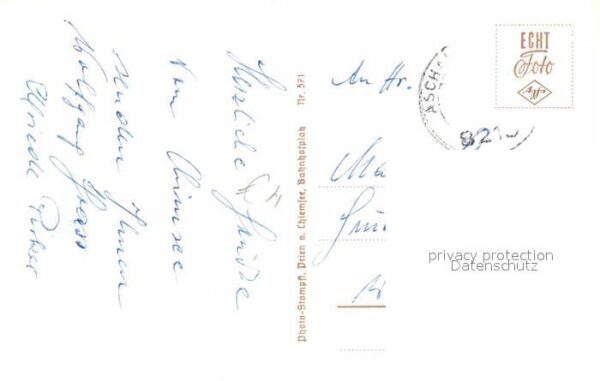 Herzliche Grüße
vom Chiemsee
senden Ihnen
Wolfgang Hrass
Elfriede Pirker
Photo-Stampfl, Prien a. Chiemsee, Bahnhofplatz Nr. 571
An Hr.
Ma
ECHT
Foto
Agfa
ASCHA
8213
privacy protection
Datenschutz